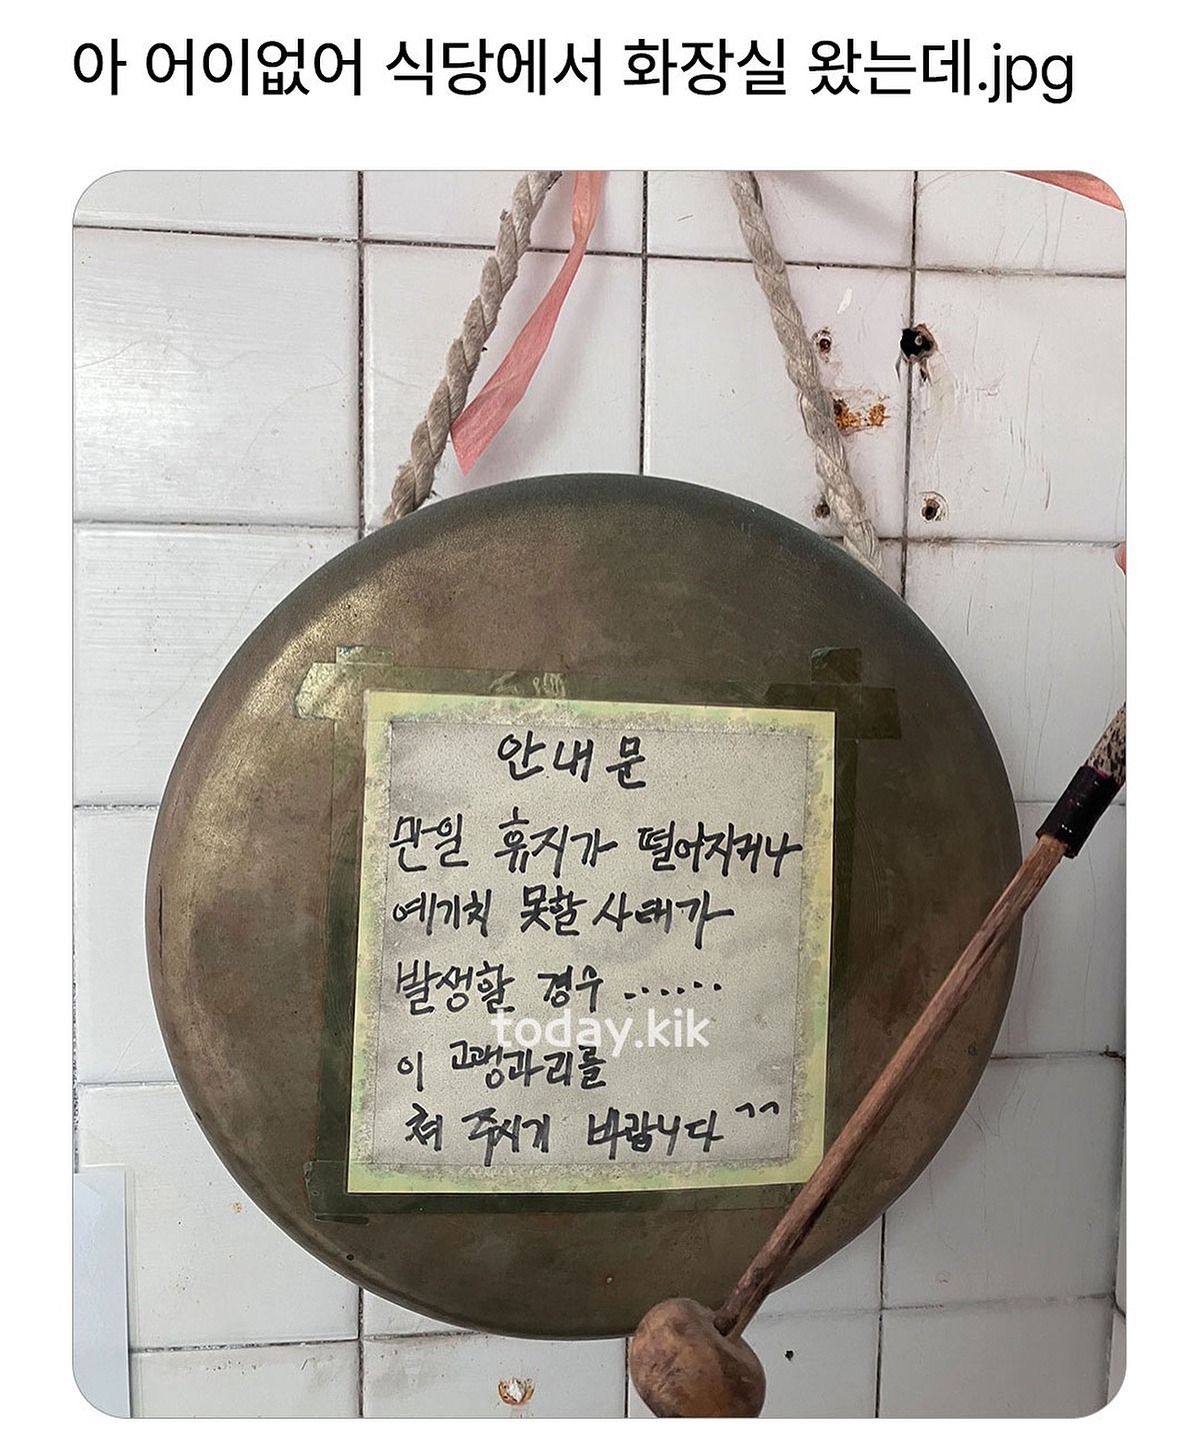 아 어이없어 식당에서 화장실 왔는데.jpg
안내문
만일 휴지가 떨어지거나
예기치 못할 사태가
발생할 경우 ......
today.kik
이 꽹과리를
쳐 주시기 바랍니다 ^^